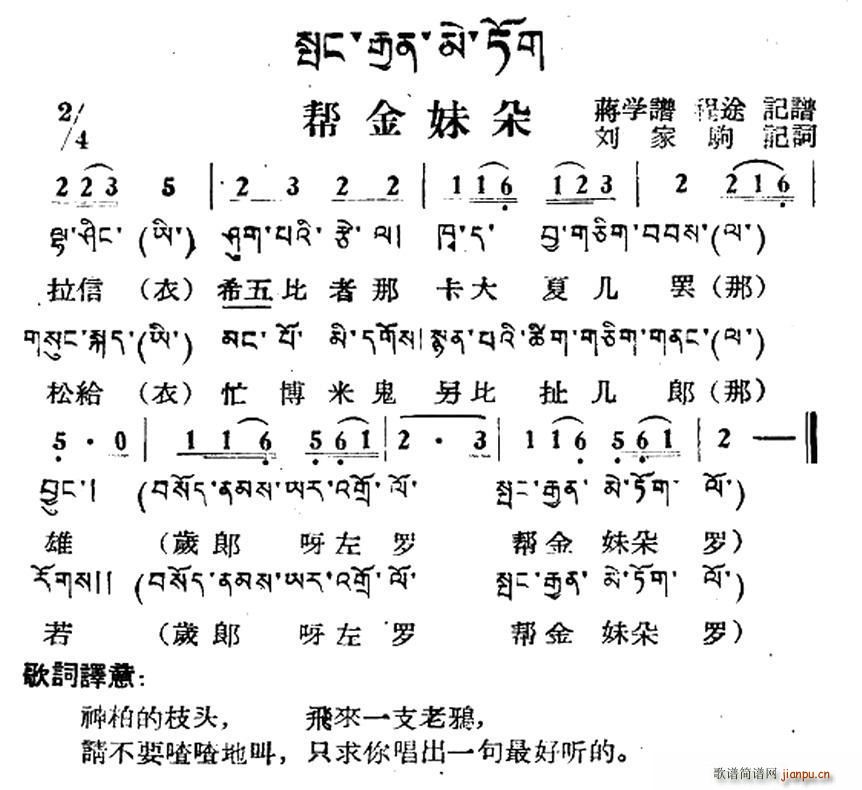 སྤང་རྒྱན་མེ་ཏོག
2/4
帮金妹朵
蔣学譜 程途 記譜
刘家駒記詞
2 2 3 5 | 2 3 2 2 | 1 1 6 1 2 3 | 2 2 1 6 |
ལྷ་ཤིང་(ཡི་) ཤུག་པའི་རྩེ་ལ། ཁྭ་ད་ བྱ་གཅིག་བབས་(ལ་)
拉信（衣）希五比者那 卡大 夏几 罢（那）
གསུང་སྐད་(ཡི་) མང་པོ་ མི་དགོས། སྙན་པའི་ཚིག་གཅིག་གནང་(ལ་)
松給（衣）忙博米鬼 另比 扯几 郎（那）
5 · 0 | 1 1 6 5 6 1 | 2 · 3 | 1 1 6 5 6 1 | 2 — ‖
བྱུང་། (བསོད་ནམས་ཡར་འགྲོ་ལོ་ སྤང་རྒྱན་མེ་ཏོག་ལོ་)
雄（歲郎 呀左罗 帮金妹朵罗）
རོགས།། (བསོད་ནམས་ཡར་འགྲོ་ལོ་ སྤང་རྒྱན་མེ་ཏོག་ལོ་)
若（歲郎 呀左罗 帮金妹朵罗）
歌詞譯意：
神柏的枝头， 飛來一支老鴉，
請不要喳喳地叫，只求你唱出一句最好听的。
歌谱简谱网 jianpu.cn